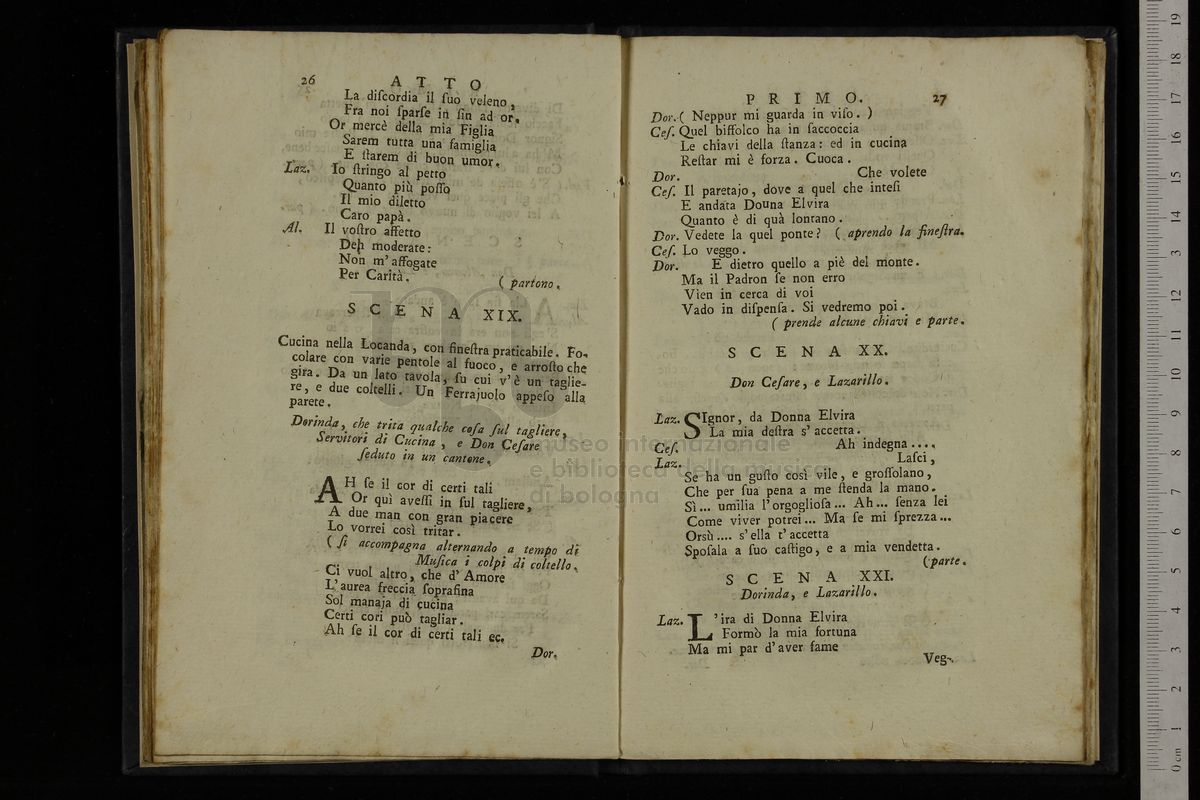 26 ATTO
La diſcordia il ſuo veleno,
Fra noi ſparſe in ſin ad or.
Or mercè della mia Figlia
Sarem tutta una famiglia
E ſtarem di buon umor.
Laz. Io ſtringo al petto
Quanto più poſſo
Il mio diletto
Caro papà.
Al. Il voſtro affetto
Deh moderate:
Non m' affogate
Per Carità.
( partono.
SCENA XIX.
Cucina nella Locanda, con fineſtra praticabile. Fo-
colare con varie pentole al fuoco, e arroſto che
gira. Da un lato tavola, ſu cui v'è un taglie-
re, e due coltelli. Un Ferrajuolo appeſo alla
parete.
Dorinda, che trita qualche coſa ſul tagliere,
Servitori di Cucina, e Don Ceſare
ſeduto in un cantone.
AH ſe il cor di certi tali
Or quì aveſſi in ſul tagliere,
A due man con gran piacere
Lo vorrei così tritar.
( ſi accompagna alternando a tempo di
Muſica i colpi di coltello.
Ci vuol altro, che d' Amore
L' aurea freccia ſopraſina
Sol manaja di cucina
Certi cori può tagliar.
Ah ſe il cor di certi tali ec.
Dor.
PRIMO. 27
Dor. ( Neppur mi guarda in viſo. )
Ceſ. Quel biffolco ha in ſaccoccia
Le chiavi della ſtanza: ed in cucina
Reſtar mi è forza. Cuoca.
Dor. Che volete
Ceſ. Il paretajo, dove a quel che inteſi
E andata Douna Elvira
Quanto è di quà lontano.
Dor. Vedete la quel ponte? ( aprendo la fineſtra.
Ceſ. Lo veggo.
Dor. E dietro quello a piè del monte.
Ma il Padron ſe non erro
Vien in cerca di voi
Vado in diſpenſa. Si vedremo poi.
( prende alcune chiavi e parte.
SCENA XX.
Don Ceſare, e Lazarillo.
Laz. SIgnor, da Donna Elvira
La mia deſtra s' accetta.
Ceſ. Ah indegna ....
Laz. Laſci,
Se ha un guſto così vile, e groſſolano,
Che per ſua pena a me ſtenda la mano.
Sì... umilia l'orgoglioſa... Ah... ſenza lei
Come viver potrei... Ma ſe mi ſprezza...
Orsù.... s'ella t'accetta
Spoſala a ſuo caſtigo, e a mia vendetta.
( parte.
SCENA XXI.
Dorinda, e Lazarillo.
Laz. L'ira di Donna Elvira
Formò la mia fortuna
Ma mi par d'aver fame
Veg-
museo internazionale
e biblioteca della musica
di bologna
0 cm 1 2 3 4 5 6 7 8 9 10 11 12 13 14 15 16 17 18 19